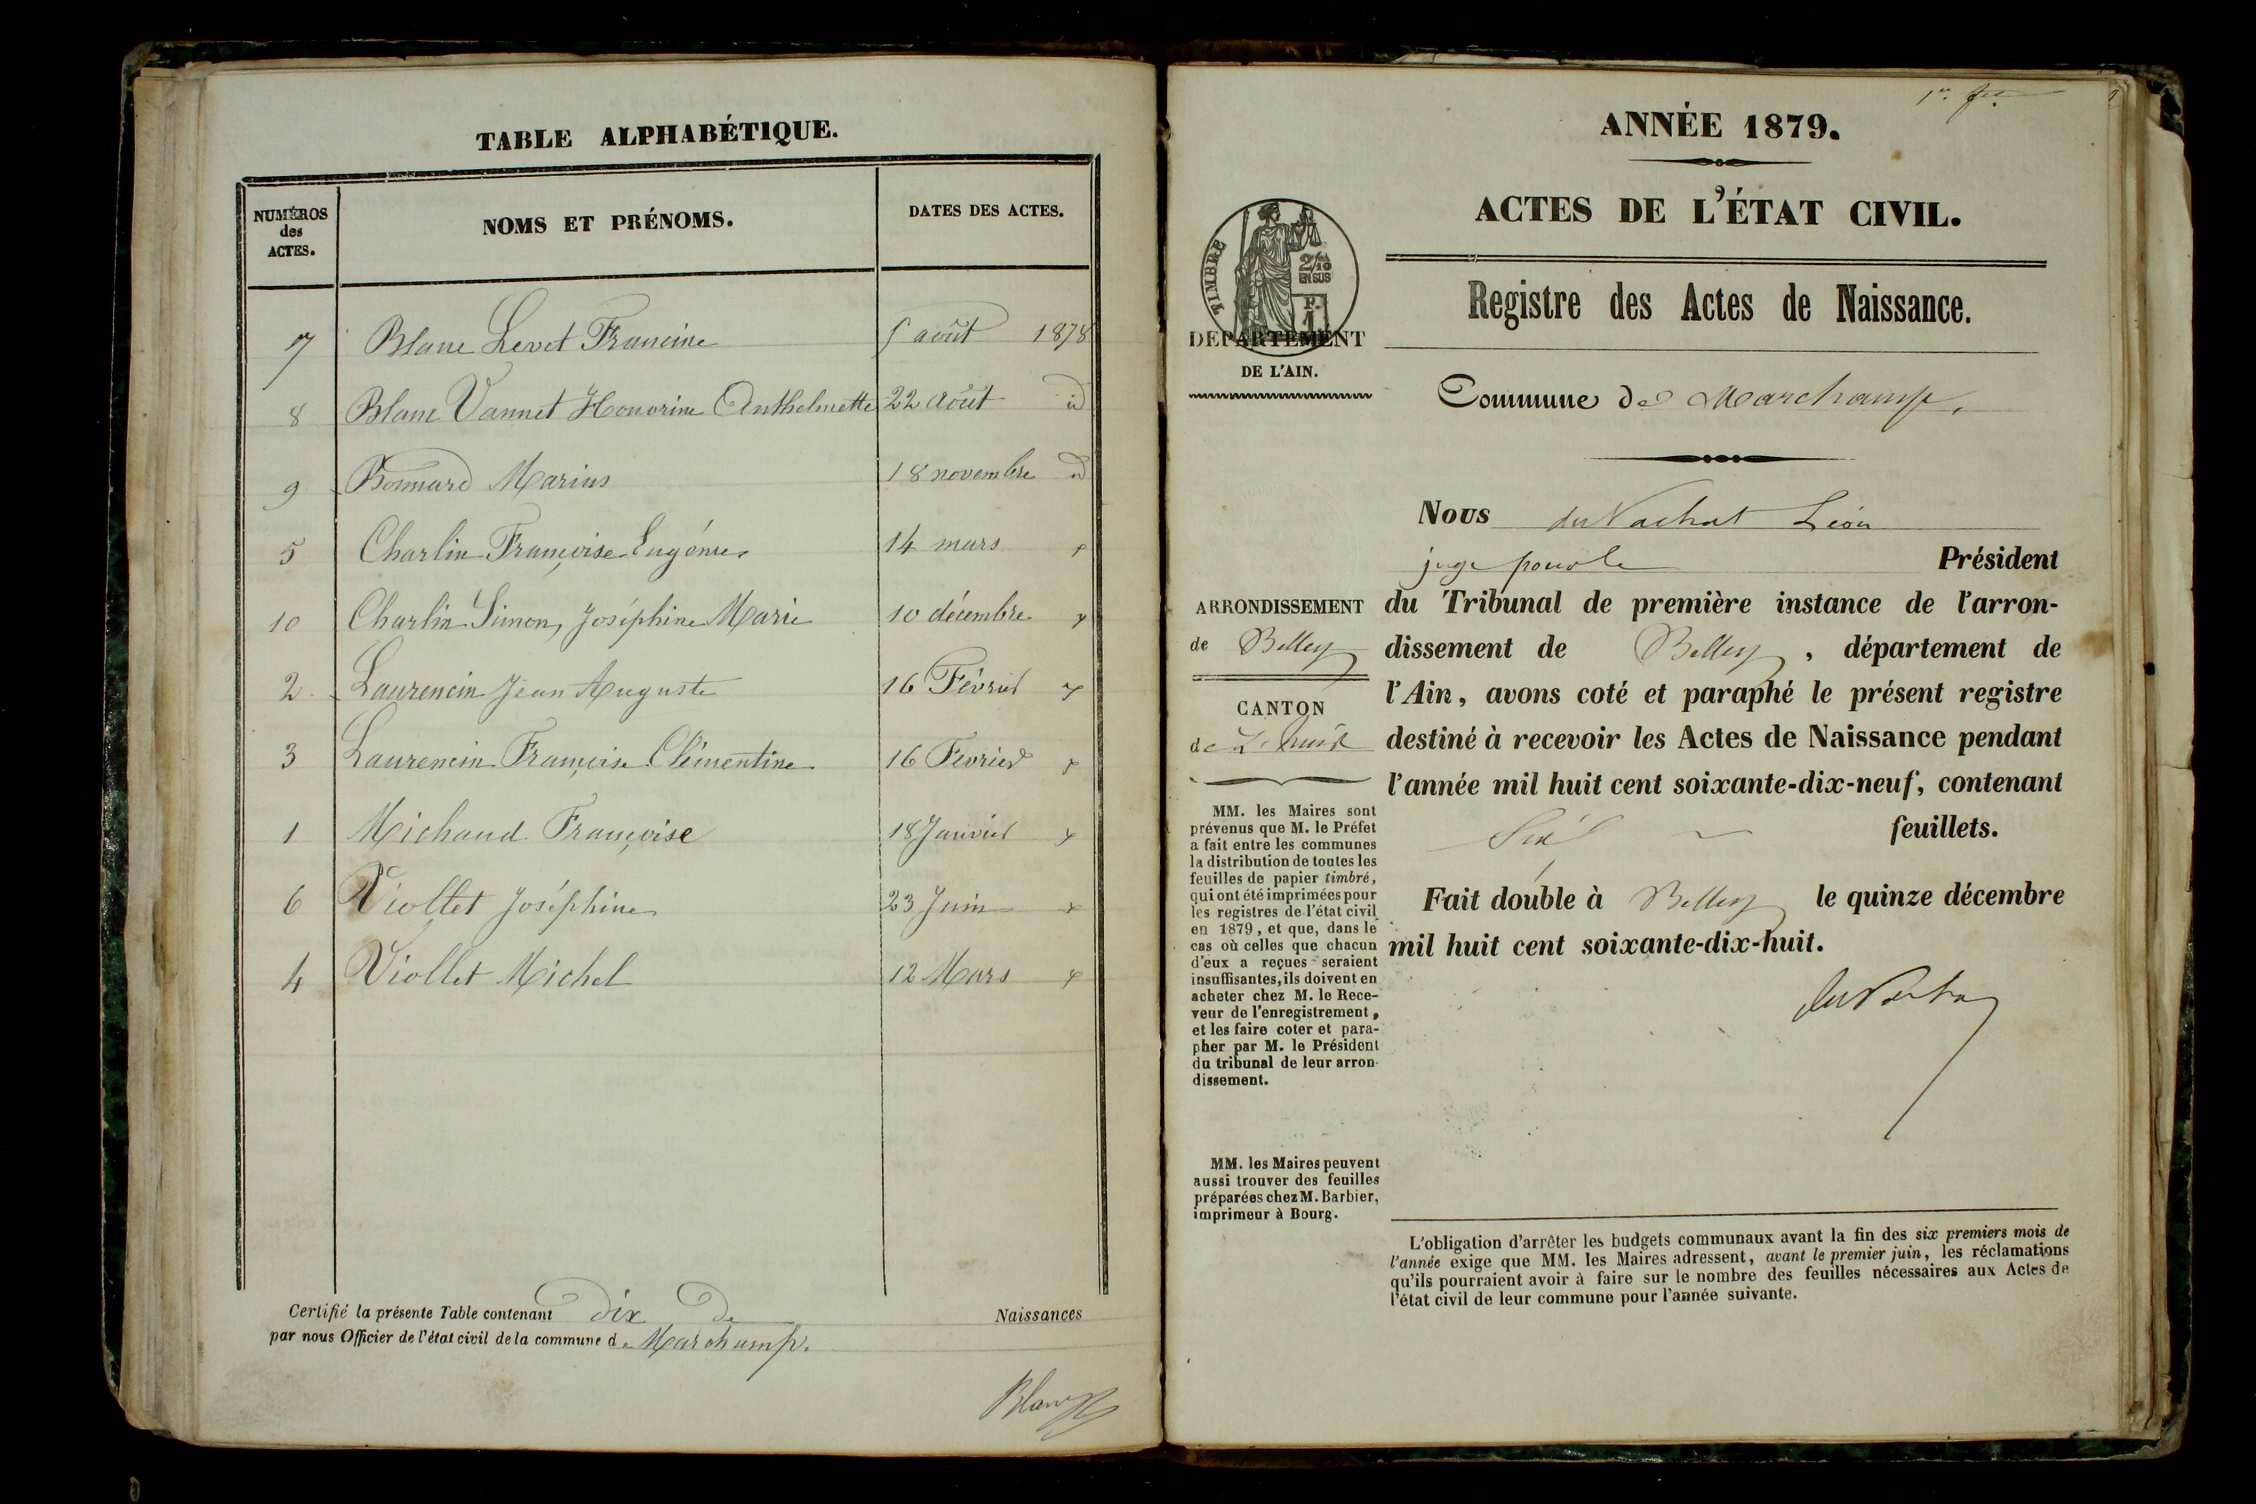 TABLE ALPHABÉTIQUE.
NUMÉROS
des
ACTES.
NOMS ET PRÉNOMS.
DATES DES ACTES.
7 Blanc Levet Francine 5 août 1878
8 Blanc Vannet Honorine Anthelmette 22 août id
9 Bonnard Marius 18 novembre id
5 Charlin Françoise Eugénie 14 mars
10 Charlin Simon, Joséphine Marie 10 décembre
2 Laurencin Jean Auguste 16 Février
3 Laurencin Françoise Clémentine 16 Février
1 Michaud Françoise 18 Janvier
6 Viollet Joséphine 23 Juin
4 Viollet Michel 12 Mars
Certifié la présente Table contenant dix De Naissances
par nous Officier de l'état civil de la commune de Marchamp.
Blanc
1er
ANNÉE 1879.
ACTES DE L'ÉTAT CIVIL.
Registre des Actes de Naissance.
TIMBRE
2/10
EN SUS
DÉPARTEMENT
DE L'AIN.
Commune de Marchamp.
Nous du Nachat Léon
juge pour le Président
du Tribunal de première instance de l'arron-
dissement de Belley, département de
l'Ain, avons coté et paraphé le présent registre
destiné à recevoir les Actes de Naissance pendant
l'année mil huit cent soixante-dix-neuf, contenant
Six feuillets.
Fait double à Belley le quinze décembre
mil huit cent soixante-dix-huit.
ARRONDISSEMENT
de Belley
CANTON
de
MM. les Maires sont
prévenus que M. le Préfet
a fait entre les communes
la distribution de toutes les
feuilles de papier timbré,
qui ont été imprimées pour
les registres de l'état civil
en 1879, et que, dans le
cas où celles que chacun
d'eux a reçues seraient
insuffisantes, ils doivent en
acheter chez M. le Rece-
veur de l'enregistrement,
et les faire coter et para-
pher par M. le Président
du tribunal de leur arron-
dissement.
MM. les Maires peuvent
aussi trouver des feuilles
préparées chez M. Barbier,
imprimeur à Bourg.
L'obligation d'arrêter les budgets communaux avant la fin des six premiers mois de
l'année exige que MM. les Maires adressent, avant le premier juin, les réclamations
qu'ils pourraient avoir à faire sur le nombre des feuilles nécessaires aux Actes de
l'état civil de leur commune pour l'année suivante.